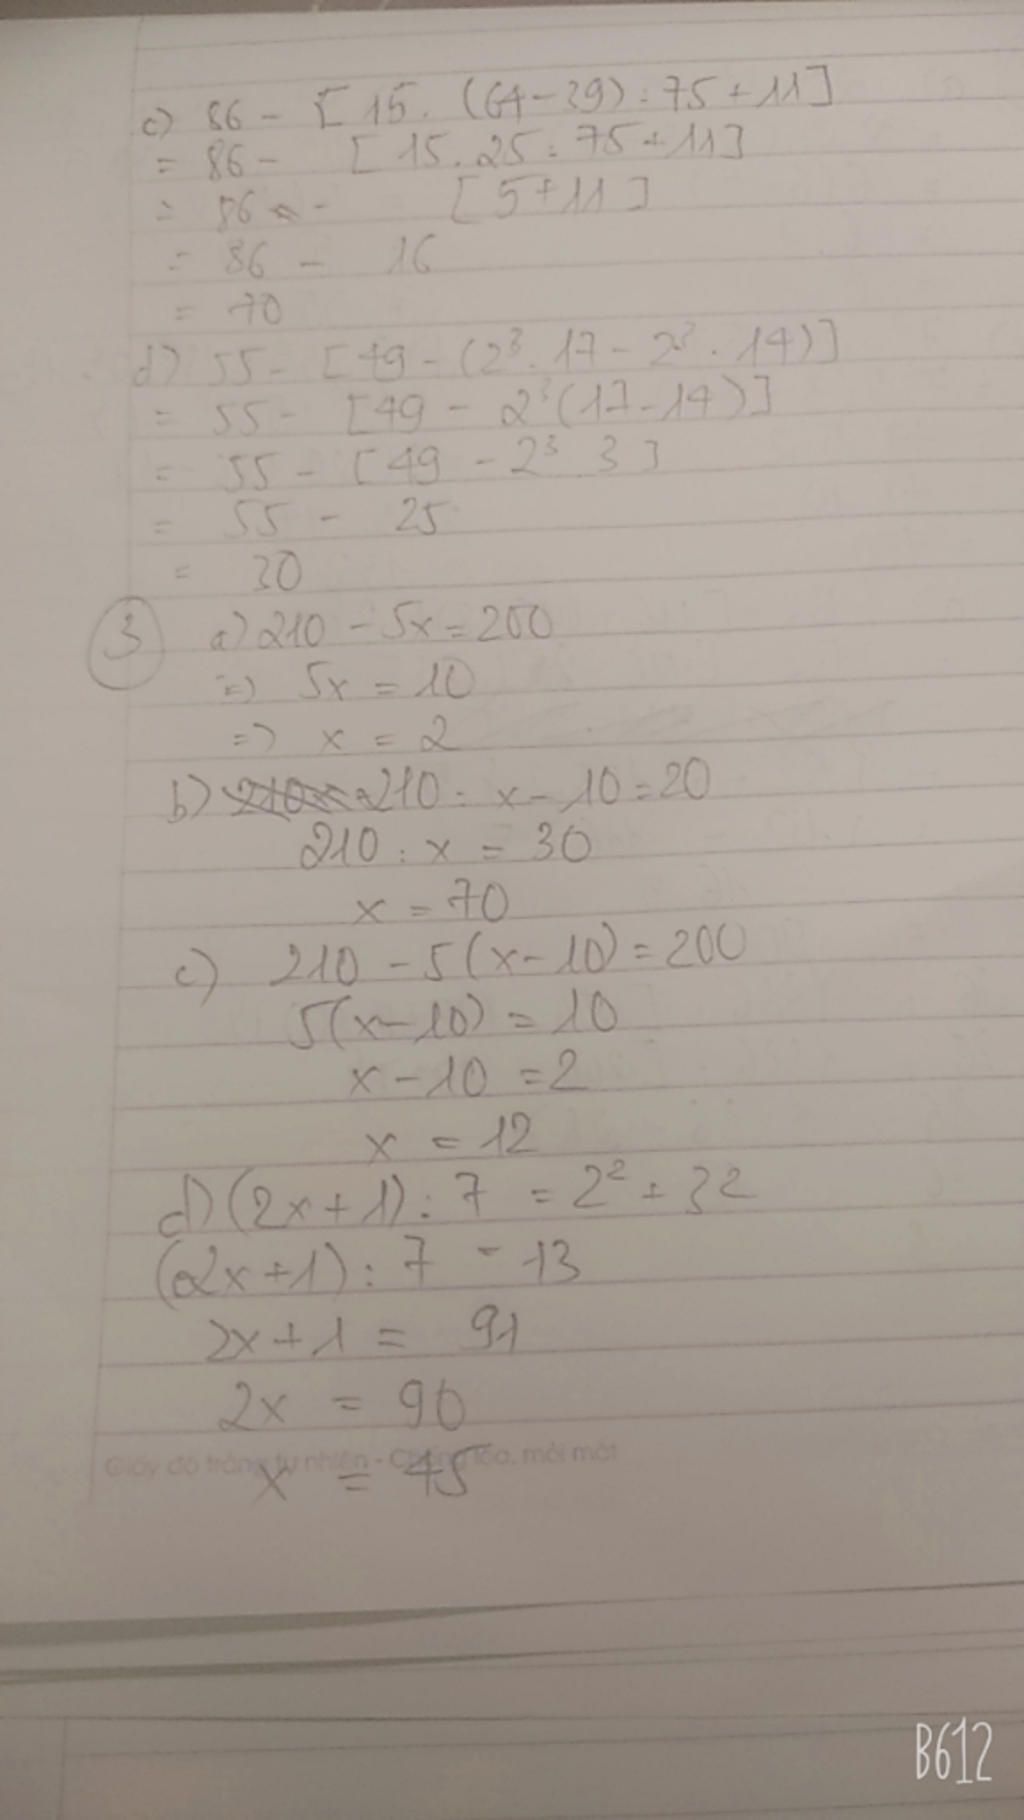 c) 86 - [15. (64-39) : 75 + 11]
= 86 - [15.25 : 75 + 11]
= 86 - [5+11]
= 86 - 16
= 70
d) 55 - [49 - (2³. 17 - 2³. 14)]
= 55 - [49 - 2³(17-14)]
= 55 - [49 - 2³ 3]
= 55 - 25
= 30
3 a) 210 - 5x = 200
=> 5x = 10
=> x = 2
b) 210 : x - 10 = 20
210 : x = 30
x = 70
c) 210 - 5(x-10) = 200
5(x-10) = 10
x - 10 = 2
x = 12
d) (2x+1) : 7 = 2² + 32
(2x+1) : 7 = 13
2x+1 = 91
2x = 90
Giấy độ trắng tự nhiên - Chống lóa, mỏi mắt
x = 45
B612